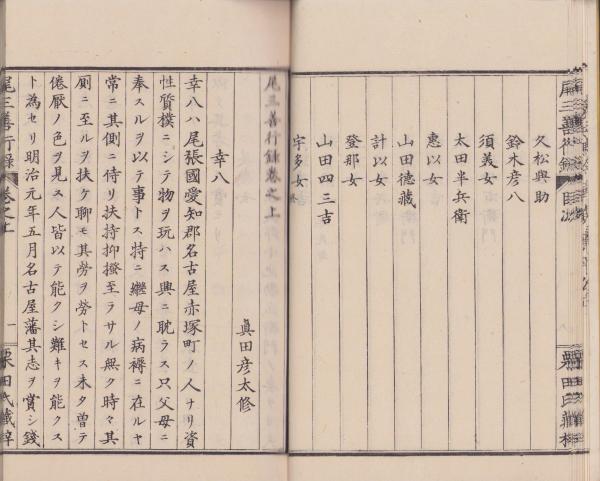 久松與助
鈴木彦八
須美女
太田半兵衛
惠以女
山田德藏
計以女
登那女
山田四三吉
宇多女
尾三善行錄卷之上
眞田彦太修
幸八
幸八ハ尾張國愛知郡名古屋赤塚町ノ人ナリ資
性質樸ニシテ物ヲ玩ハス興ニ耽ラス只父母ニ
奉スルヲ以テ事トス特ニ繼母ノ病褥ニ在ルヤ
常ニ其側ニ侍リ扶持抑搔至ラサル無ク時々其
厠ニ至ルヲ扶ケ聊モ其勞ヲ勞トセス未タ曽テ
倦厭ノ色ヲ見ス人皆以テ能クシ難キヲ能クス
ト為セリ明治元年五月名古屋藩其志ヲ賞シ錢
尾三善行錄 卷之上 一 栗田氏藏梓